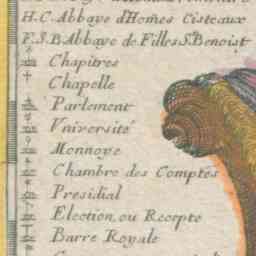 H.C. Abbaye d'Hom̃es Cisteaux
F.S.B. Abbaye de Filles S. Benoist
Chapitres
Chapelle
Parlement
Vniversité
Monnoye
Chambre des Comptes
Presidial
Election ou Recepte
Barre Royale